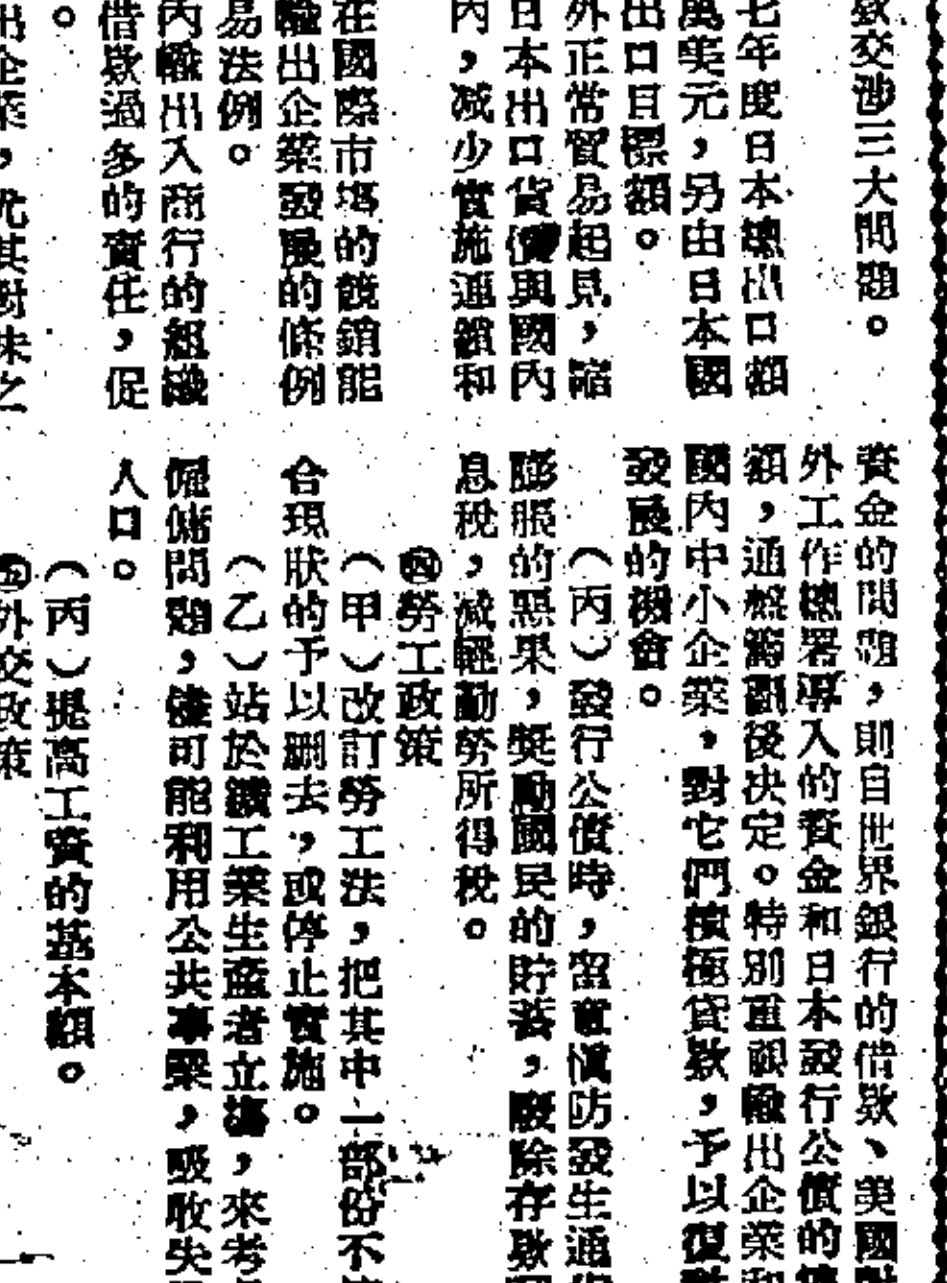 欵交涉三大問題。
七年度日本總出口額
萬美元，另由日本國
出口目標額。
外正常貿易起見，縮
日本出口貨價與國內
內，减少實施通鎖和
在國際市塲的競銷能
輸出企業發展的條例
易法例。
內輸出入商行的組織
借欵過多的責任，促
。
出企業，尤其對味之
資金的問題，則自世界銀行的借欵、美國對
外工作總署導入的資金和日本發行公債的
額，通盤籌劃後决定。特別重視輸出企業和
國內中小企業，對它們積極貸欵，予以復
發展的機會。
（丙）發行公債時，留意慎防發生通貨
膨脹的惡果，獎勵國民的貯蓄，廢除存欵
息稅，减輕勤勞所得稅。
㊃勞工政策
（甲）改訂勞工法，把其中一部份不
合現狀的予以删去，或停止實施。
（乙）站於鑛工業生產者立塲，來考
僱傭問題，儘可能利用公共事業，吸收失
人口。
（丙）提高工資的基本額。
㊄外交政策